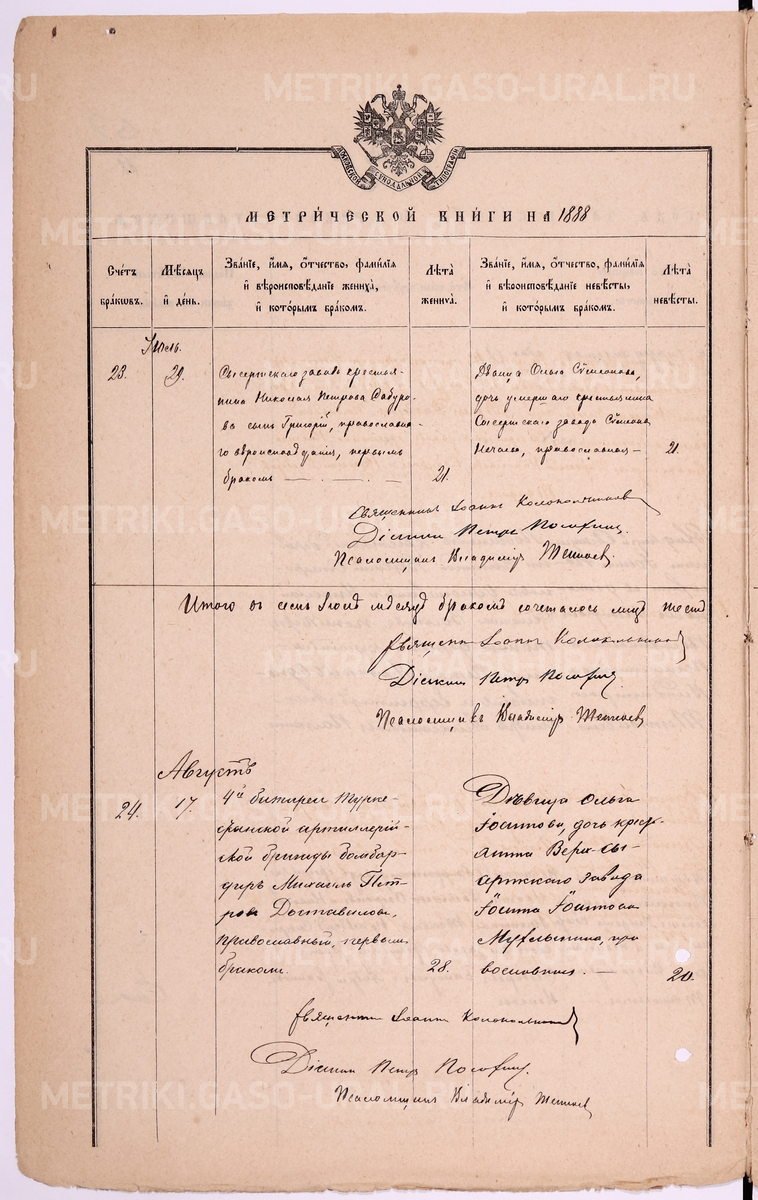 METRIKI.GASO-URAL.RU
МОСКОВСКОЙ СѴНОДАЛЬНОЙ ТИПОГРАФІИ
МЕТРИ́ЧЕСКОЙ КНИ́ГИ НА 1888
Сче́тъ бра́кωвъ.
Мѣ́сѧцъ и҆ де́нь.
Зва́нїе, и҆́мѧ, ѻ҆́тчество, фами́лїѧ и҆ вѣроисповѣ́данїе жениха̀, и҆ кото́рымъ бра́комъ.
Лѣ́та жениха̀.
Зва́нїе, и҆́мѧ, ѻ҆́тчество, фами́лїѧ и҆ вѣроисповѣ́данїе невѣ́сты, и҆ кото́рымъ бра́комъ.
Лѣ́та невѣ́сты.
23.
29.
Сысертскаго завода крестья-
нина Николая Петрова Сабуро-
ва сынъ Григорій, православна-
го вѣроисповѣданія, первымъ
бракомъ
21.
Дѣвица Ольга Сѵмеонова,
дочь умершаго крестьянина
Сысертскаго завода Сѵмеона
Нечаева, православная
21.
Священникъ Іоаннъ Колокольниковъ
Діаконъ Петръ
Псаломщикъ Владиміръ
Итого въ семъ мѣсяцѣ бракомъ сочеталось лицъ
Священникъ Іоаннъ Колокольниковъ
Діаконъ Петръ
Псаломщикъ Владиміръ
Августъ
24.
17.
4й батареи Турке-
станской артиллерій-
ской бригады бомбар-
диръ Михаилъ Пет-
ровъ Доставаловъ,
православный, первымъ
бракомъ.
28.
Дѣвица Ольга
дочь
Верх-Сы-
сертскаго завода
пра
вославная.
20.
Священникъ Іоаннъ Колокольниковъ
Діаконъ Петръ
Псаломщикъ Владиміръ